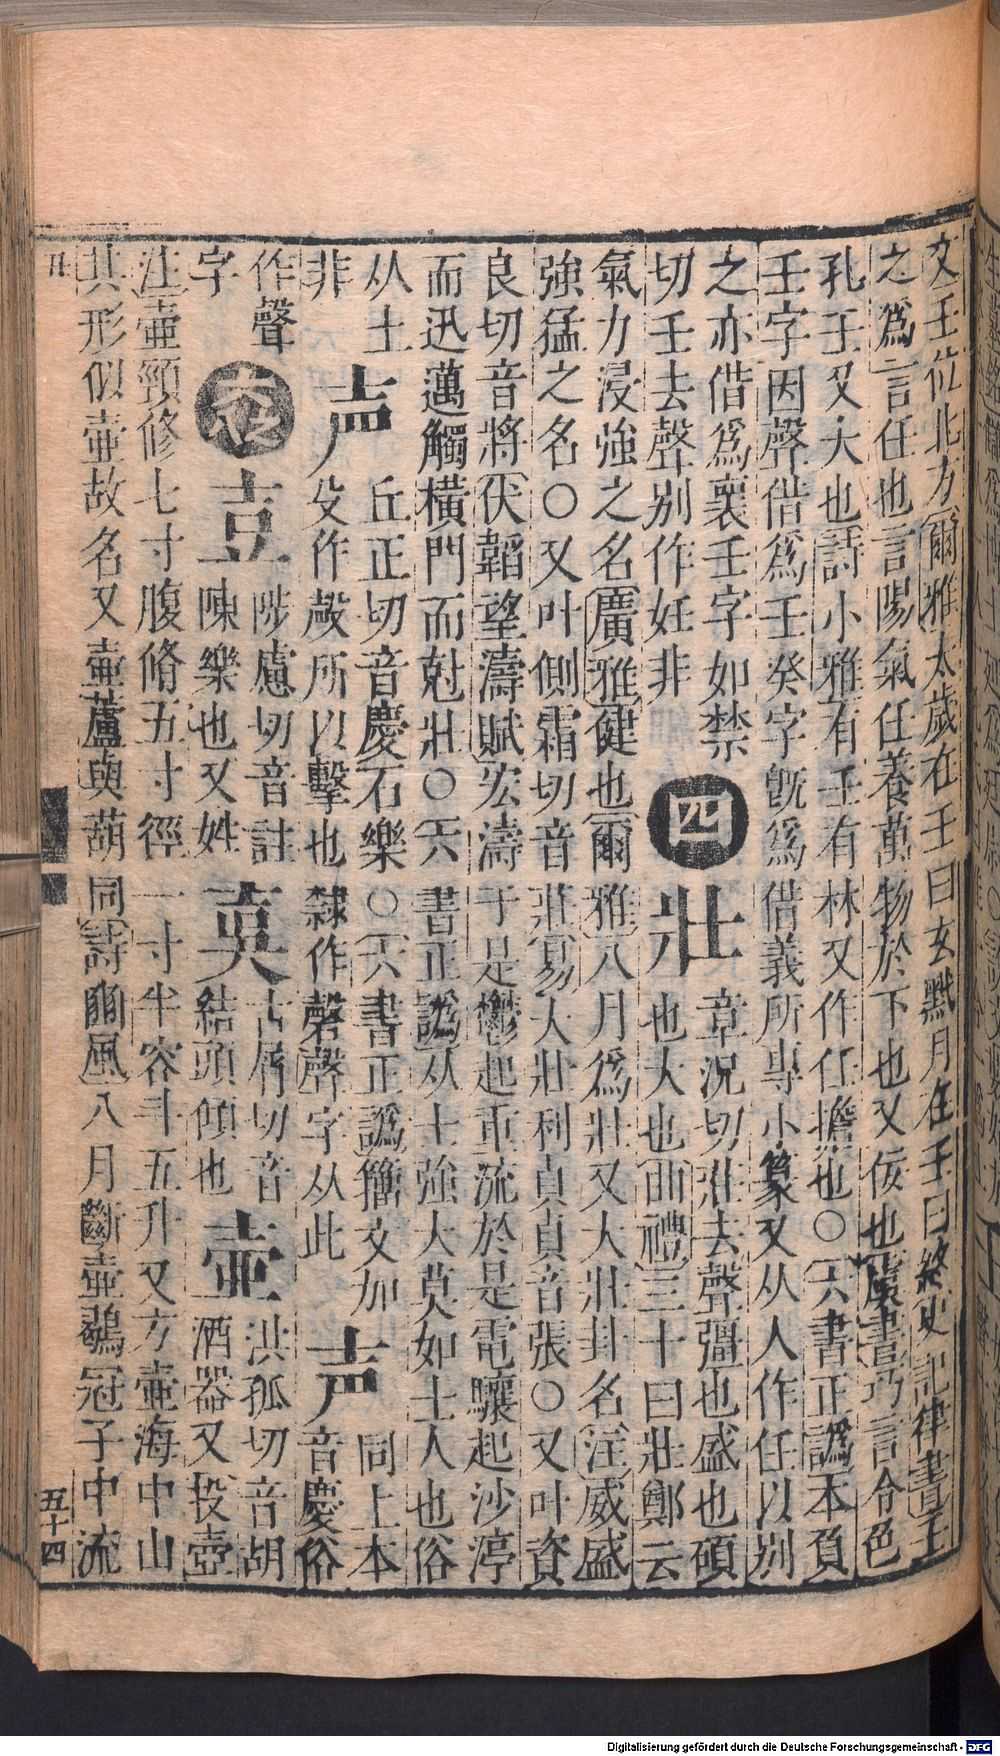 文壬位北方爾雅太歲在壬曰玄黓月在壬曰終史記律書壬
之爲言任也言陽氣任養萬物於下也又佞也虞書巧言令色
孔壬又大也詩小雅有壬有林又作任擔也○六書正譌本負
壬字因聲借爲壬癸字旣爲借義所專小篆又从人作任以別
之亦借爲襄壬字如禁
切壬去聲别作妊非
四
壯
章況切莊去聲彊也盛也碩
也大也曲禮三十曰壯鄭云
氣力浸強之名廣雅健也爾雅八月爲壯又大壯卦名注威盛
強猛之名○又叶側霜切音莊易大壯利貞貞音張○又叶資
良切音將伏韜望濤賦宏濤于是鬱起重流於是電驤起沙渟
而迅邁觸橫門而尅壯○六書正譌从士強大莫如士人也俗
从土
非
声
丘正切音慶石樂○六書正譌籀文加
殳作殸所以擊也隸作磬聲字从此
声
同上本
音慶俗
作聲
字
壴
陟慮切音註
陳樂也又姓
古屑切音
結頭傾也
壺
洪孤切音胡
酒器又投壺
注壺頸修七寸腹脩五寸徑一寸半容斗五升又方壺海中山
其形似壺故名又壺蘆與葫同詩豳風八月斷壺鶡冠子中流
五十四
Digitalisierung gefördert durch die Deutsche Forschungsgemeinschaft - DFG